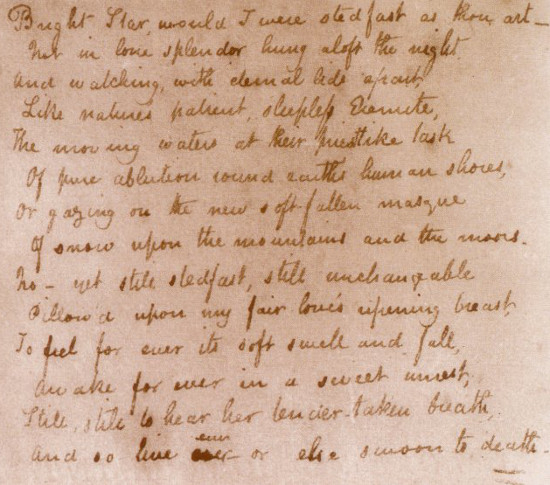 Bright Star, would I were stedfast as thou art —
Not in lone splendor hung aloft the night
And watching, with eternal lids apart,
Like nature's patient, sleepless Eremite,
The moving waters at their priestlike task
Of pure ablution round earth's human shores,
Or gazing on the new soft-fallen masque
Of snow upon the mountains and the moors.
No — yet still stedfast, still unchangeable
Pillow'd upon my fair love's ripening breast,
To feel for ever its soft swell and fall,
Awake for ever in a sweet unrest,
Still, still to hear her tender-taken breath,
And so live ever or else swoon to death —